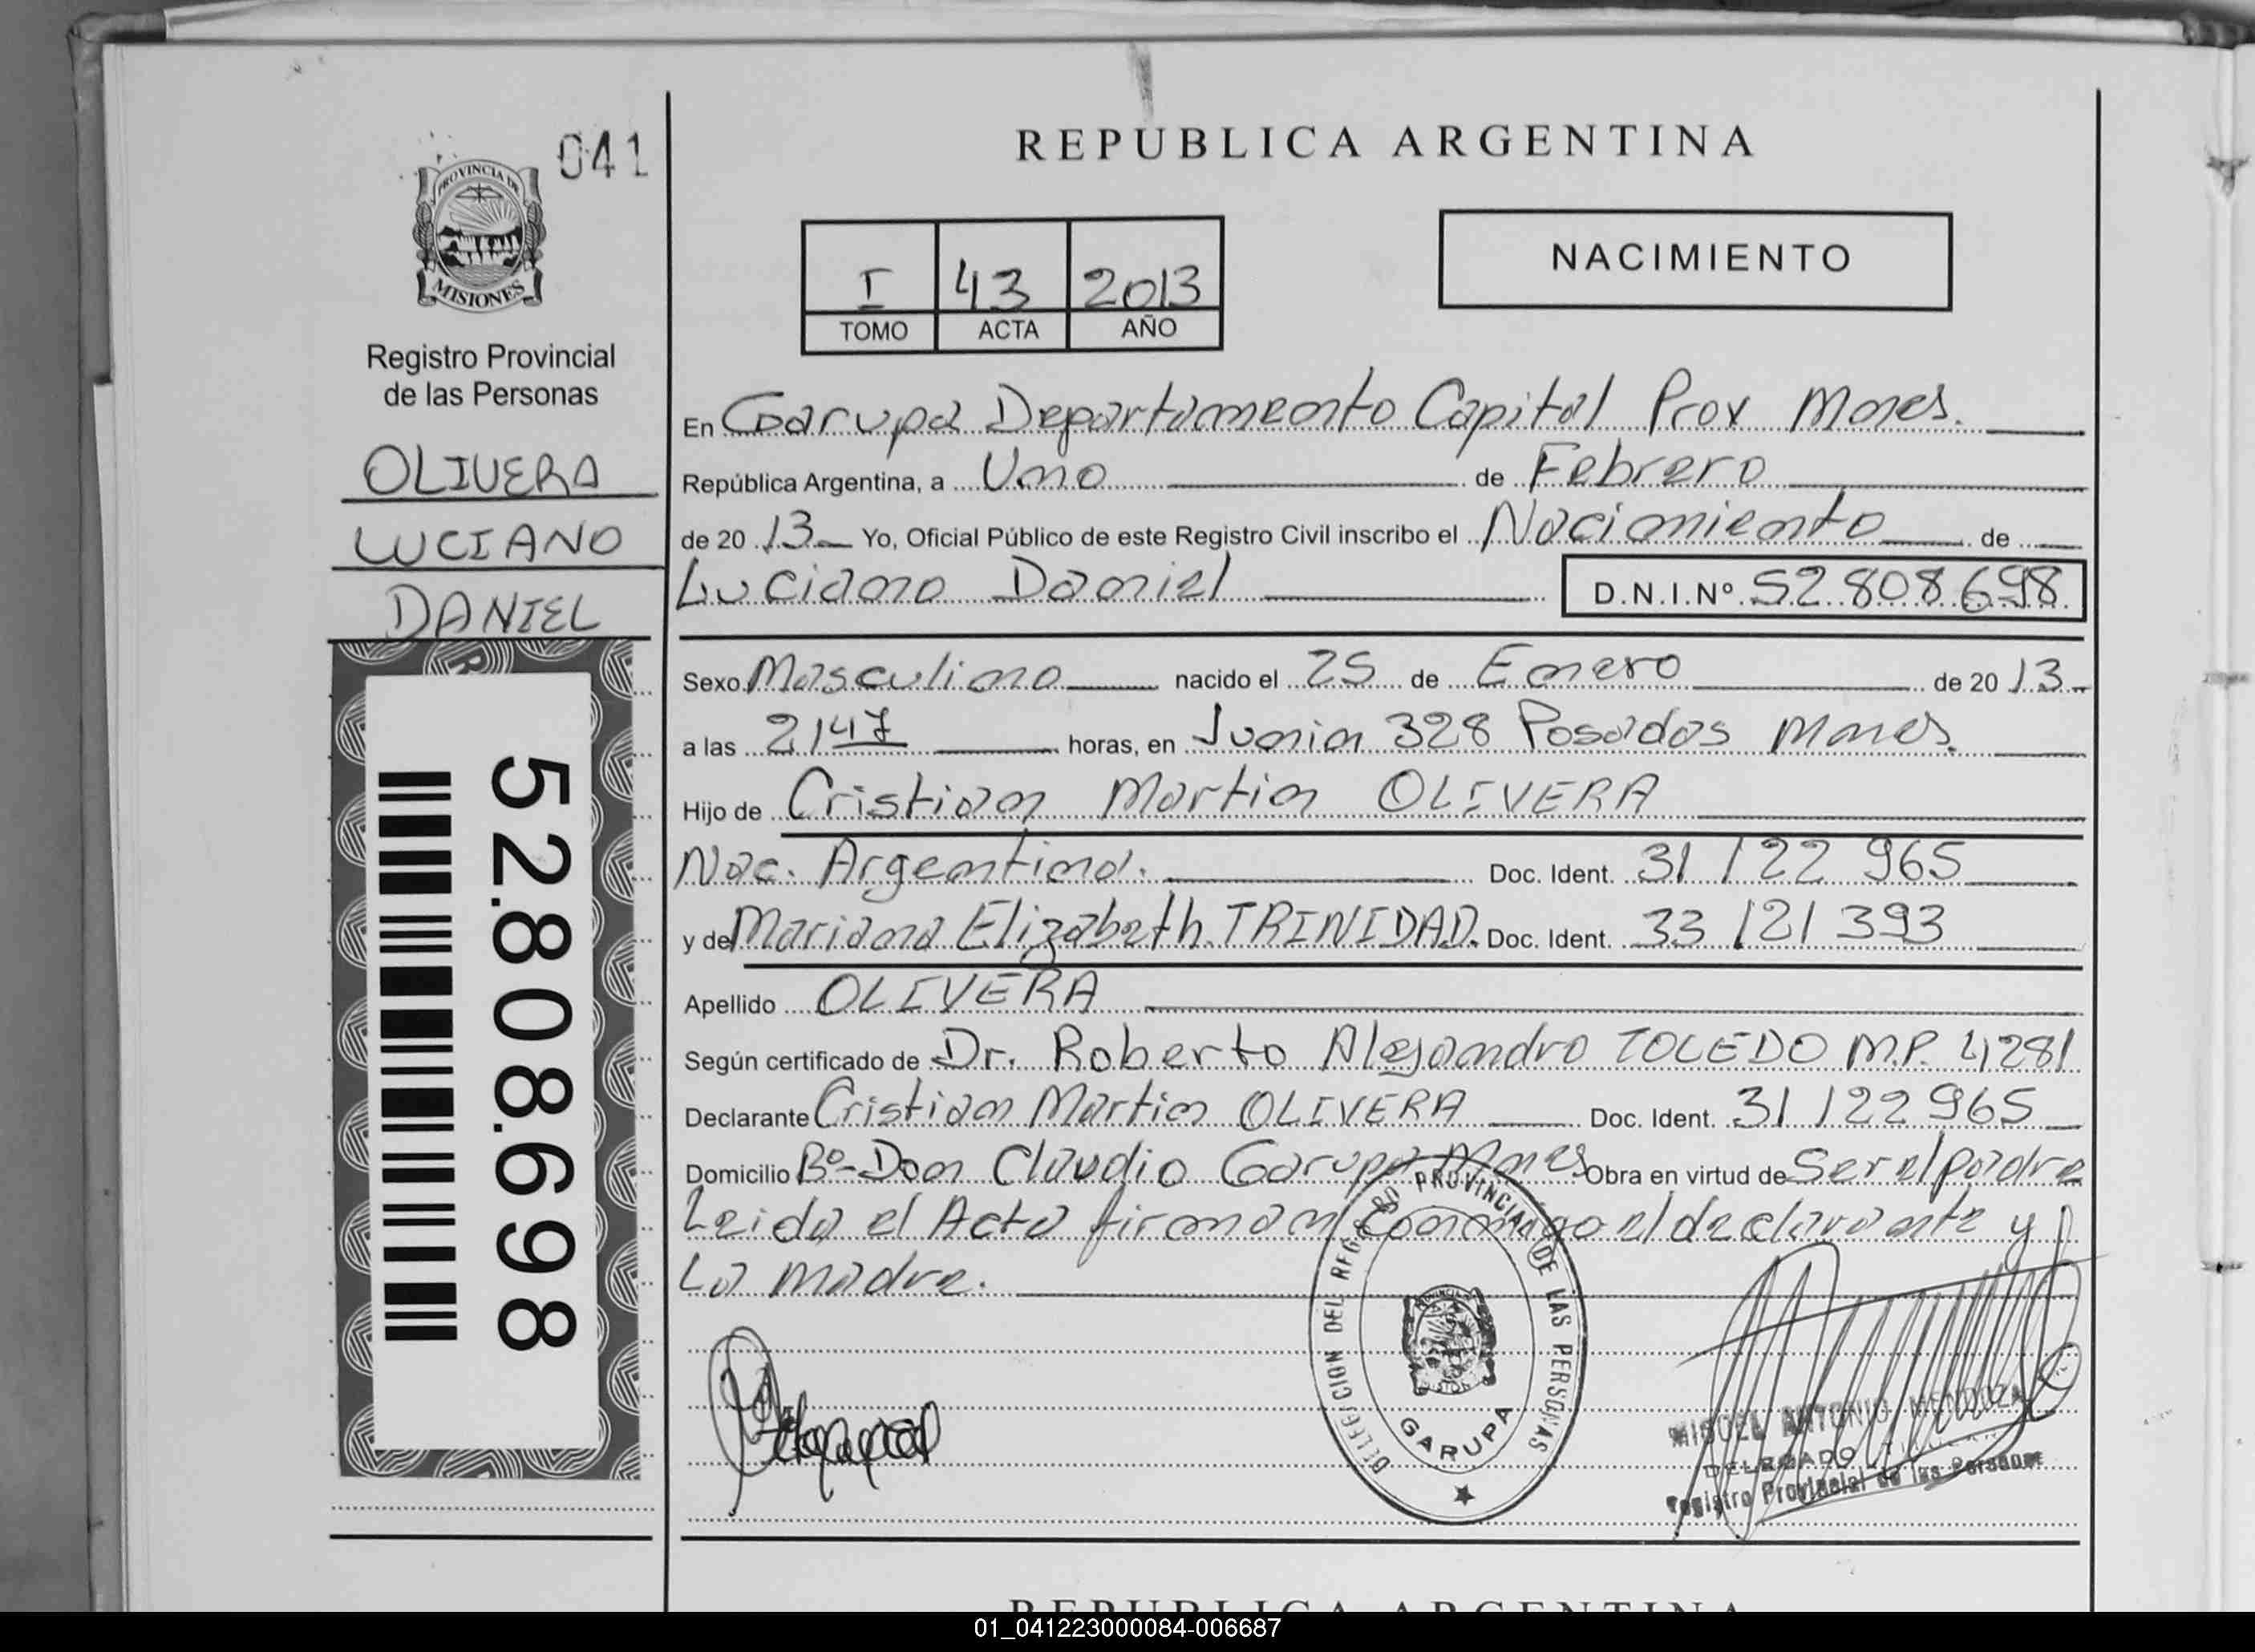 041
PROVINCIA DE
MISIONES
Registro Provincial
de las Personas
OLIVERA
LUCIANO
DANIEL
52.808.698
REPUBLICA ARGENTINA
I 43 2013
TOMO ACTA AÑO
NACIMIENTO
En Garupa Departamento Capital Prov Mnes.
República Argentina, a Uno de Febrero
de 20 13 Yo, Oficial Público de este Registro Civil inscribo el Nacimiento de
Luciano Daniel D.N.I.Nº 52.808.698
Sexo Masculino nacido el 25 de Enero de 20 13
a las 2147 horas, en Junin 328 Posadas Mnes.
Hijo de Cristian Martin OLIVERA
Nac. Argentina. Doc. Ident. 31 122 965
y de Mariana Elizabeth TRINIDAD. Doc. Ident. 33 121 393
Apellido OLIVERA
Según certificado de Dr. Roberto Alejandro TOLEDO M.P. 4281
Declarante Cristian Martin OLIVERA Doc. Ident. 31 122 965
Domicilio Bº-Don Claudio Garupa Mnes Obra en virtud de Ser el padre
Leida el Acta firman conmigo el declarante y
La madre.
DELEGACION DEL REGISTRO PROVINCIAL DE LAS PERSONAS
GARUPA
MIGUEL ANTONIO MENDOZA
DELEGADO
Registro Provincial de las Personas
REPUBLICA ARGENTINA
01_041223000084-006687